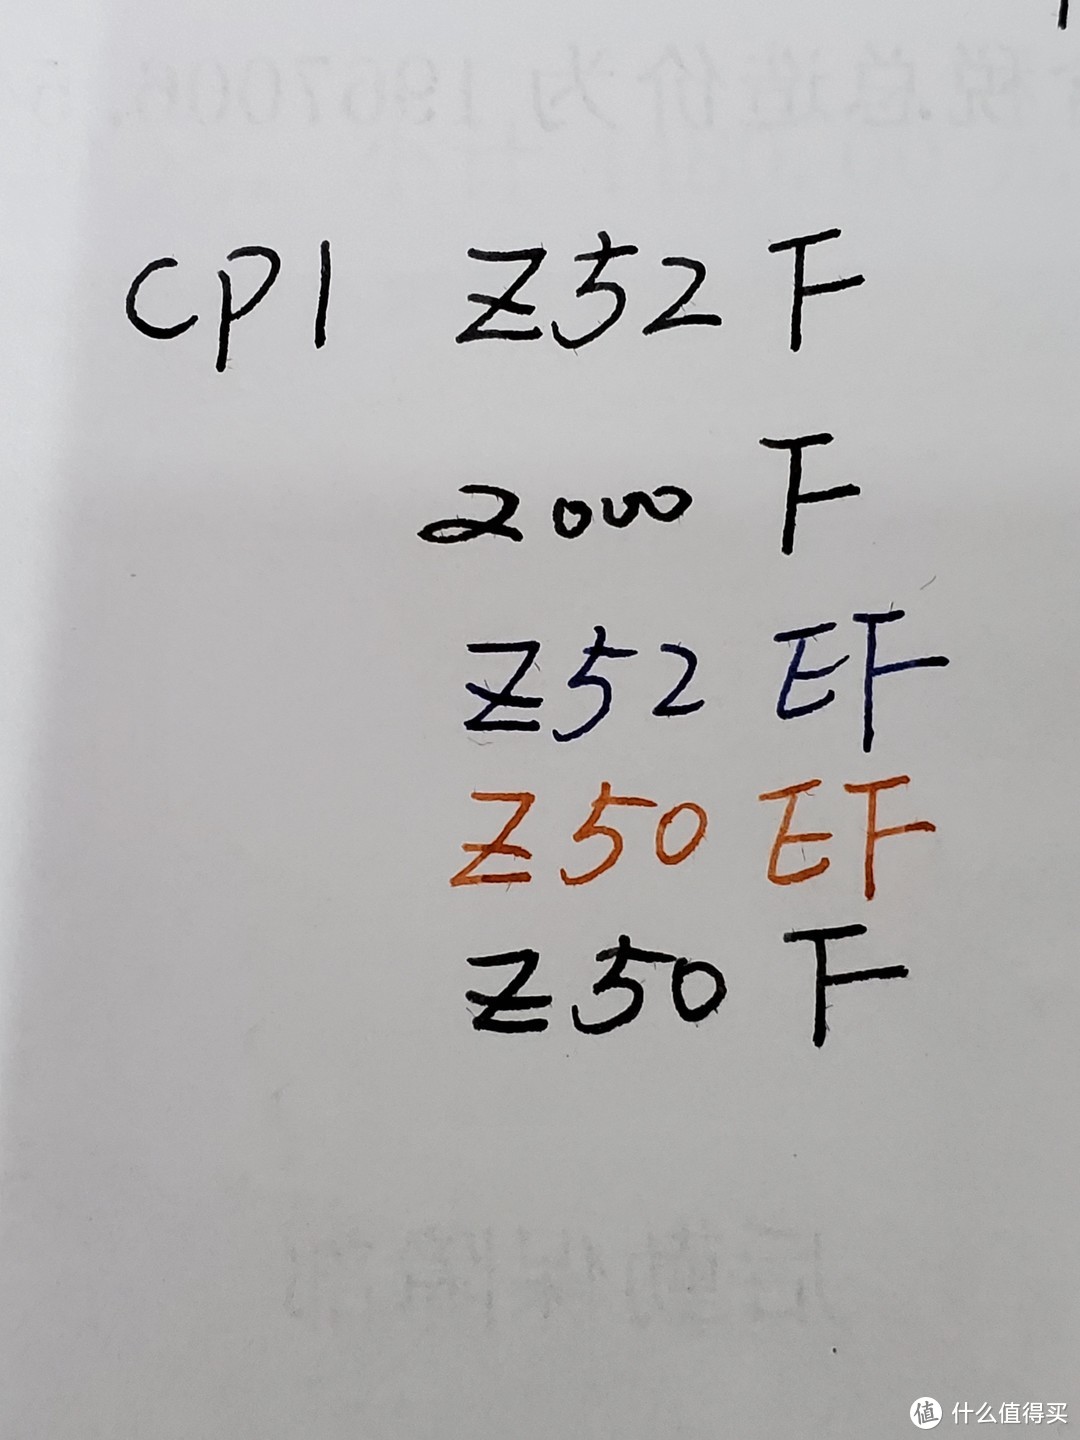 CP1 Z52 F
2000 F
Z52 EF
Z50 EF
Z50 F
值 什么值得买